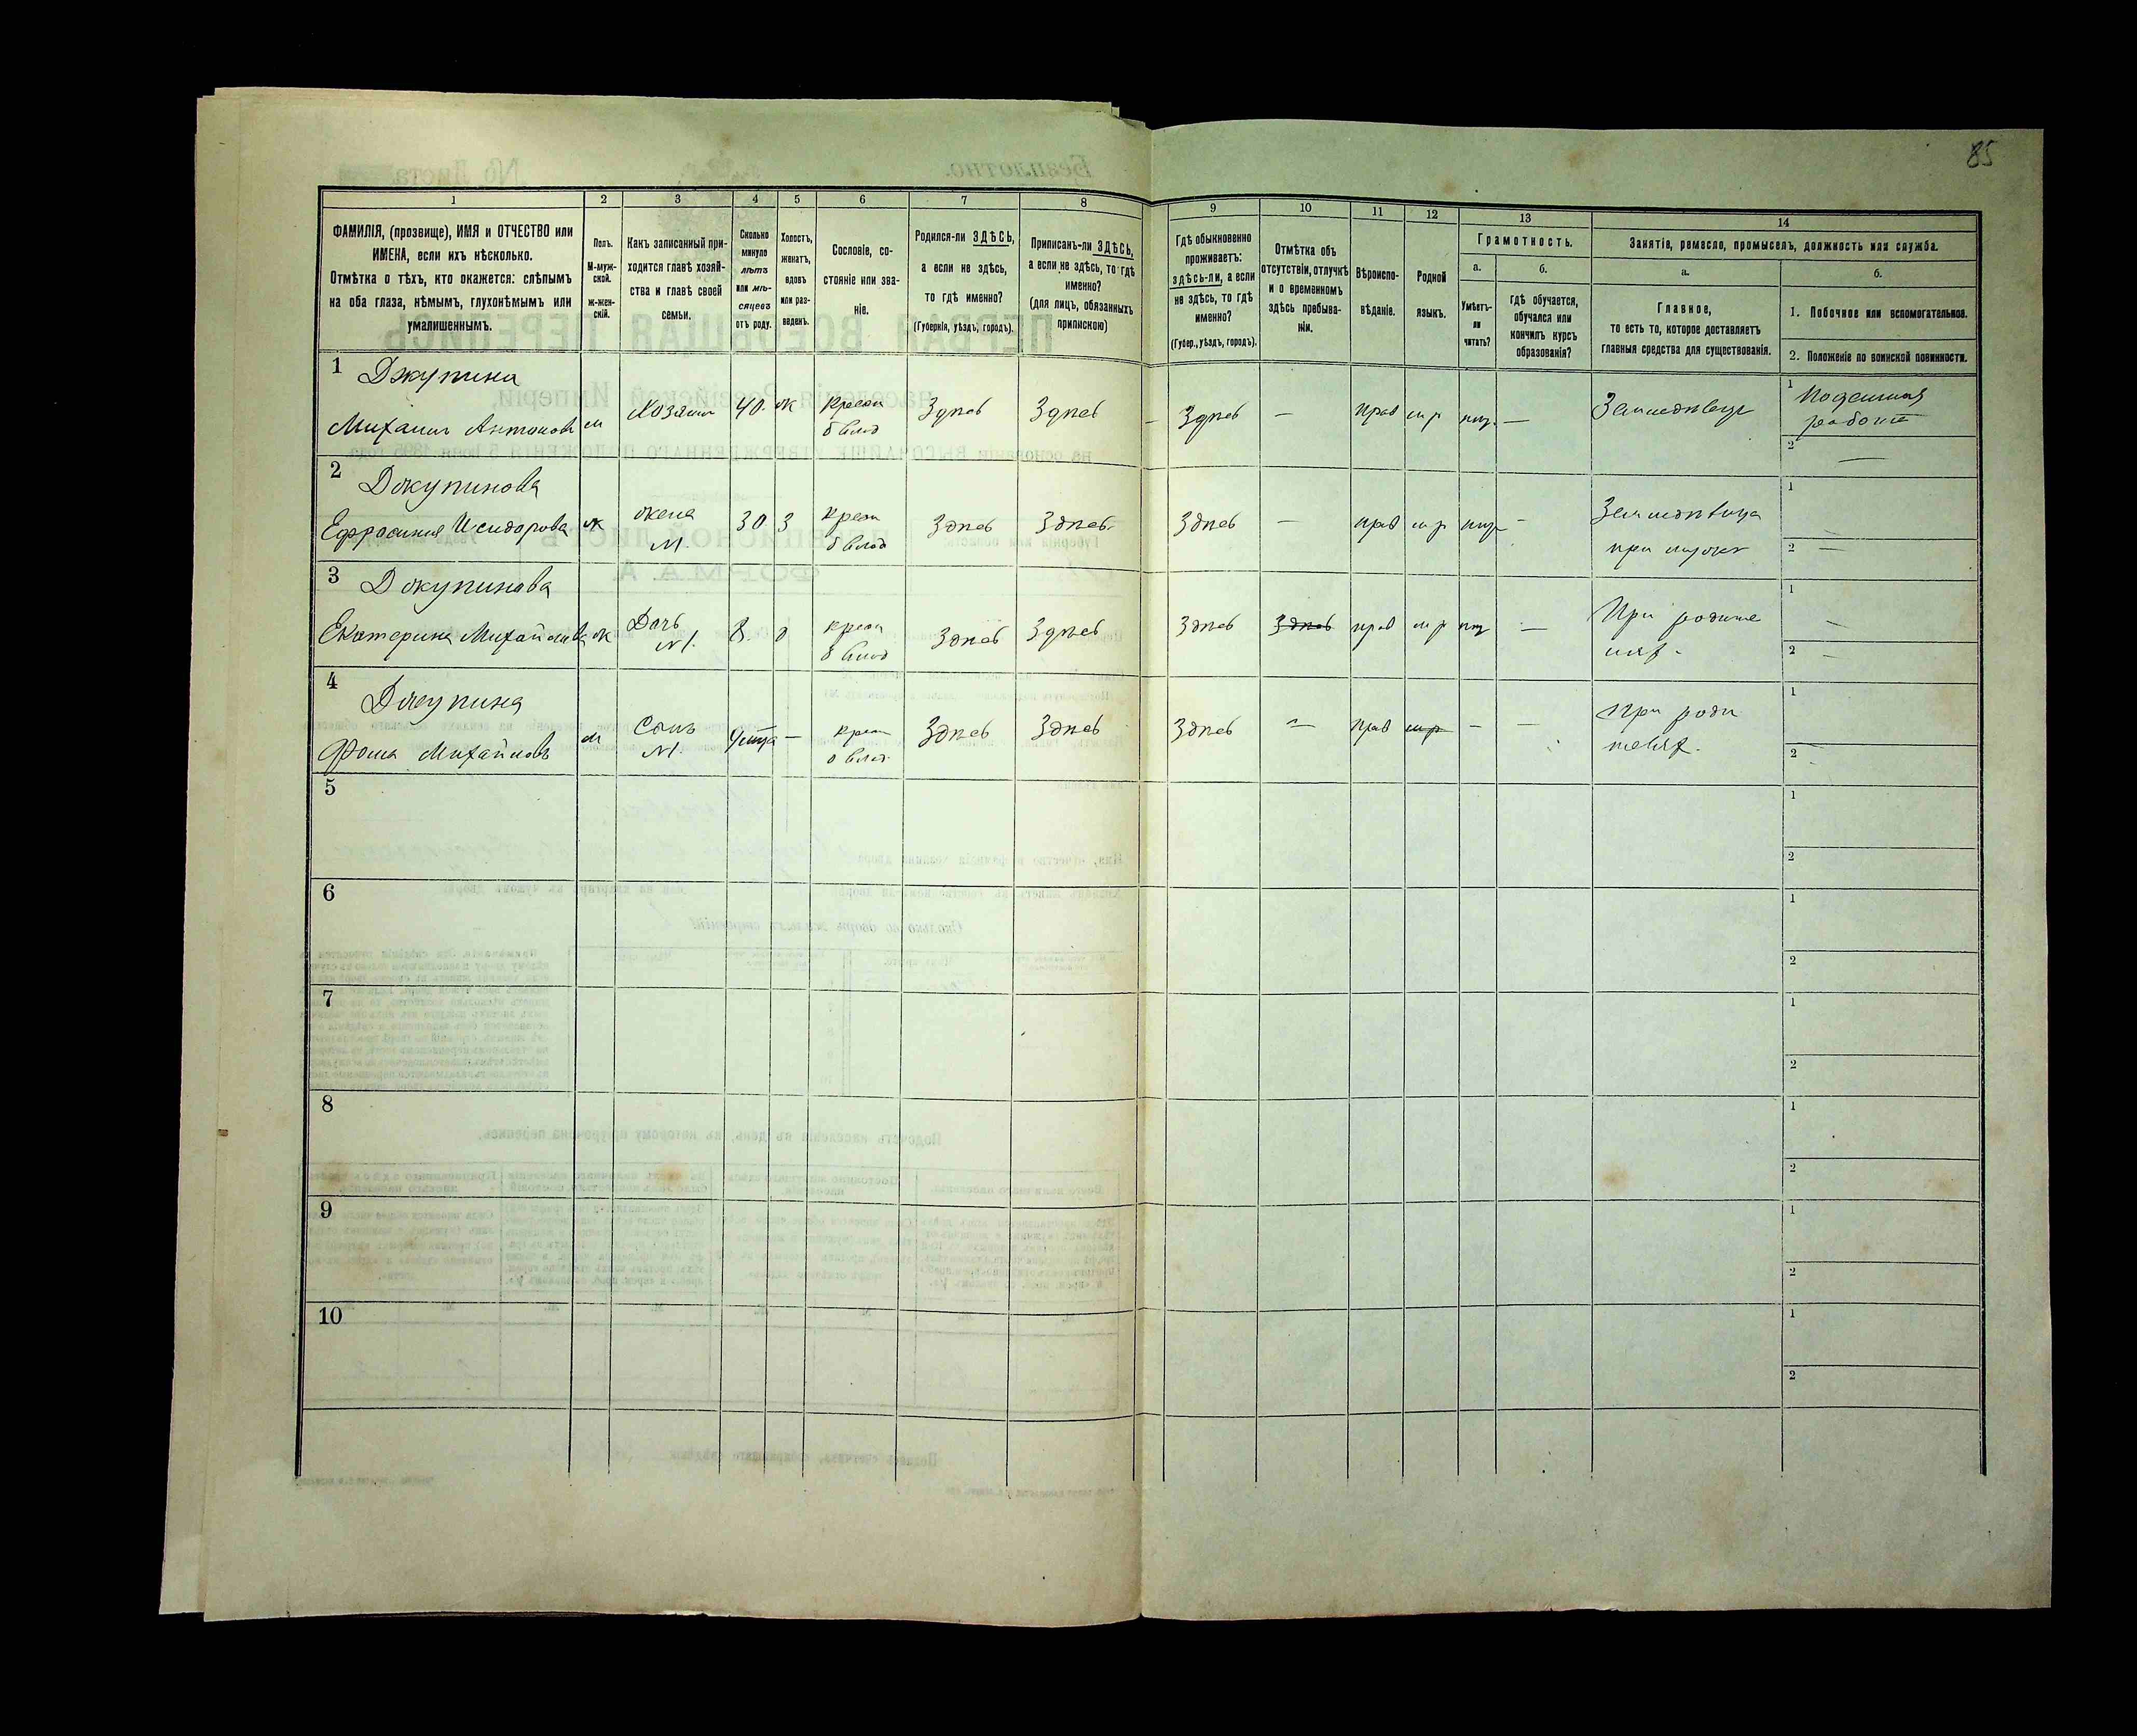 85
1 2 3 4 5 6 7 8 9 10 11 12 13 14
ФАМИЛІЯ, (прозвище), ИМЯ и ОТЧЕСТВО или
ИМЕНА, если ихъ нѣсколько.
Отмѣтка о тѣхъ, кто окажется: слѣпымъ
на оба глаза, нѣмымъ, глухонѣмымъ или
умалишеннымъ.
Полъ.
М-муж-
ской.
ж-жен-
скій.
Какъ записанный при-
ходится главѣ хозяй-
ства и главѣ своей
семьи.
Сколько
минуло
лѣтъ
или мѣ-
сяцевъ
отъ роду.
Холостъ,
женатъ,
вдовъ
или раз-
веденъ.
Сословіе, со-
стояніе или зва-
ніе.
Родился-ли ЗДѢСЬ,
а если не здѣсь,
то гдѣ именно?
(Губернія, уѣздъ, городъ).
Приписанъ-ли ЗДѢСЬ,
а если не здѣсь, то гдѣ
именно?
(для лицъ, обязанныхъ
припискою)
Гдѣ обыкновенно
проживаетъ:
здѣсь-ли, а если
не здѣсь, то гдѣ
именно?
(Губер., уѣздъ, городъ).
Отмѣтка объ
отсутствіи, отлучкѣ
и о временномъ
здѣсь пребыва-
ніи.
Вѣроиспо-
вѣданіе.
Родной
языкъ.
Грамотность.
а.
Умѣетъ-
ли
читать?
б.
гдѣ обучается,
обучался или
кончилъ курсъ
образованія?
Занятіе, ремесло, промыселъ, должность или служба.
а.
Главное,
то есть то, которое доставляетъ
главныя средства для существованія.
б.
1. Побочное или вспомогательное.
2. Положеніе по воинской повинности.
1 Джупина
Михаилъ Антоновъ м Хозяинъ 40. ж Крест Здѣсь Здѣсь — Здѣсь — прав м р —
б влад
1 Поденная
работа
2 —
2 Джупинова
Ефросинія Исидорова ж жена 30 З Крест Здѣсь Здѣсь Здѣсь — прав м р —
М. б влад
1 —
2 —
3 Джупинова
Екатерина Михайлова ж Дочь 8. д крест Здѣсь Здѣсь Здѣсь Здѣсь прав м р — При родите
М. б влад лях.
1 —
2 —
4 Джупина
Фома Михайловъ м Сынъ — крест Здѣсь Здѣсь Здѣсь — прав м р — — При роди
М. б влад телях.
1
2 —
5
1
2
6
1
2
7
1
2
8
1
2
9
1
2
10
1
2